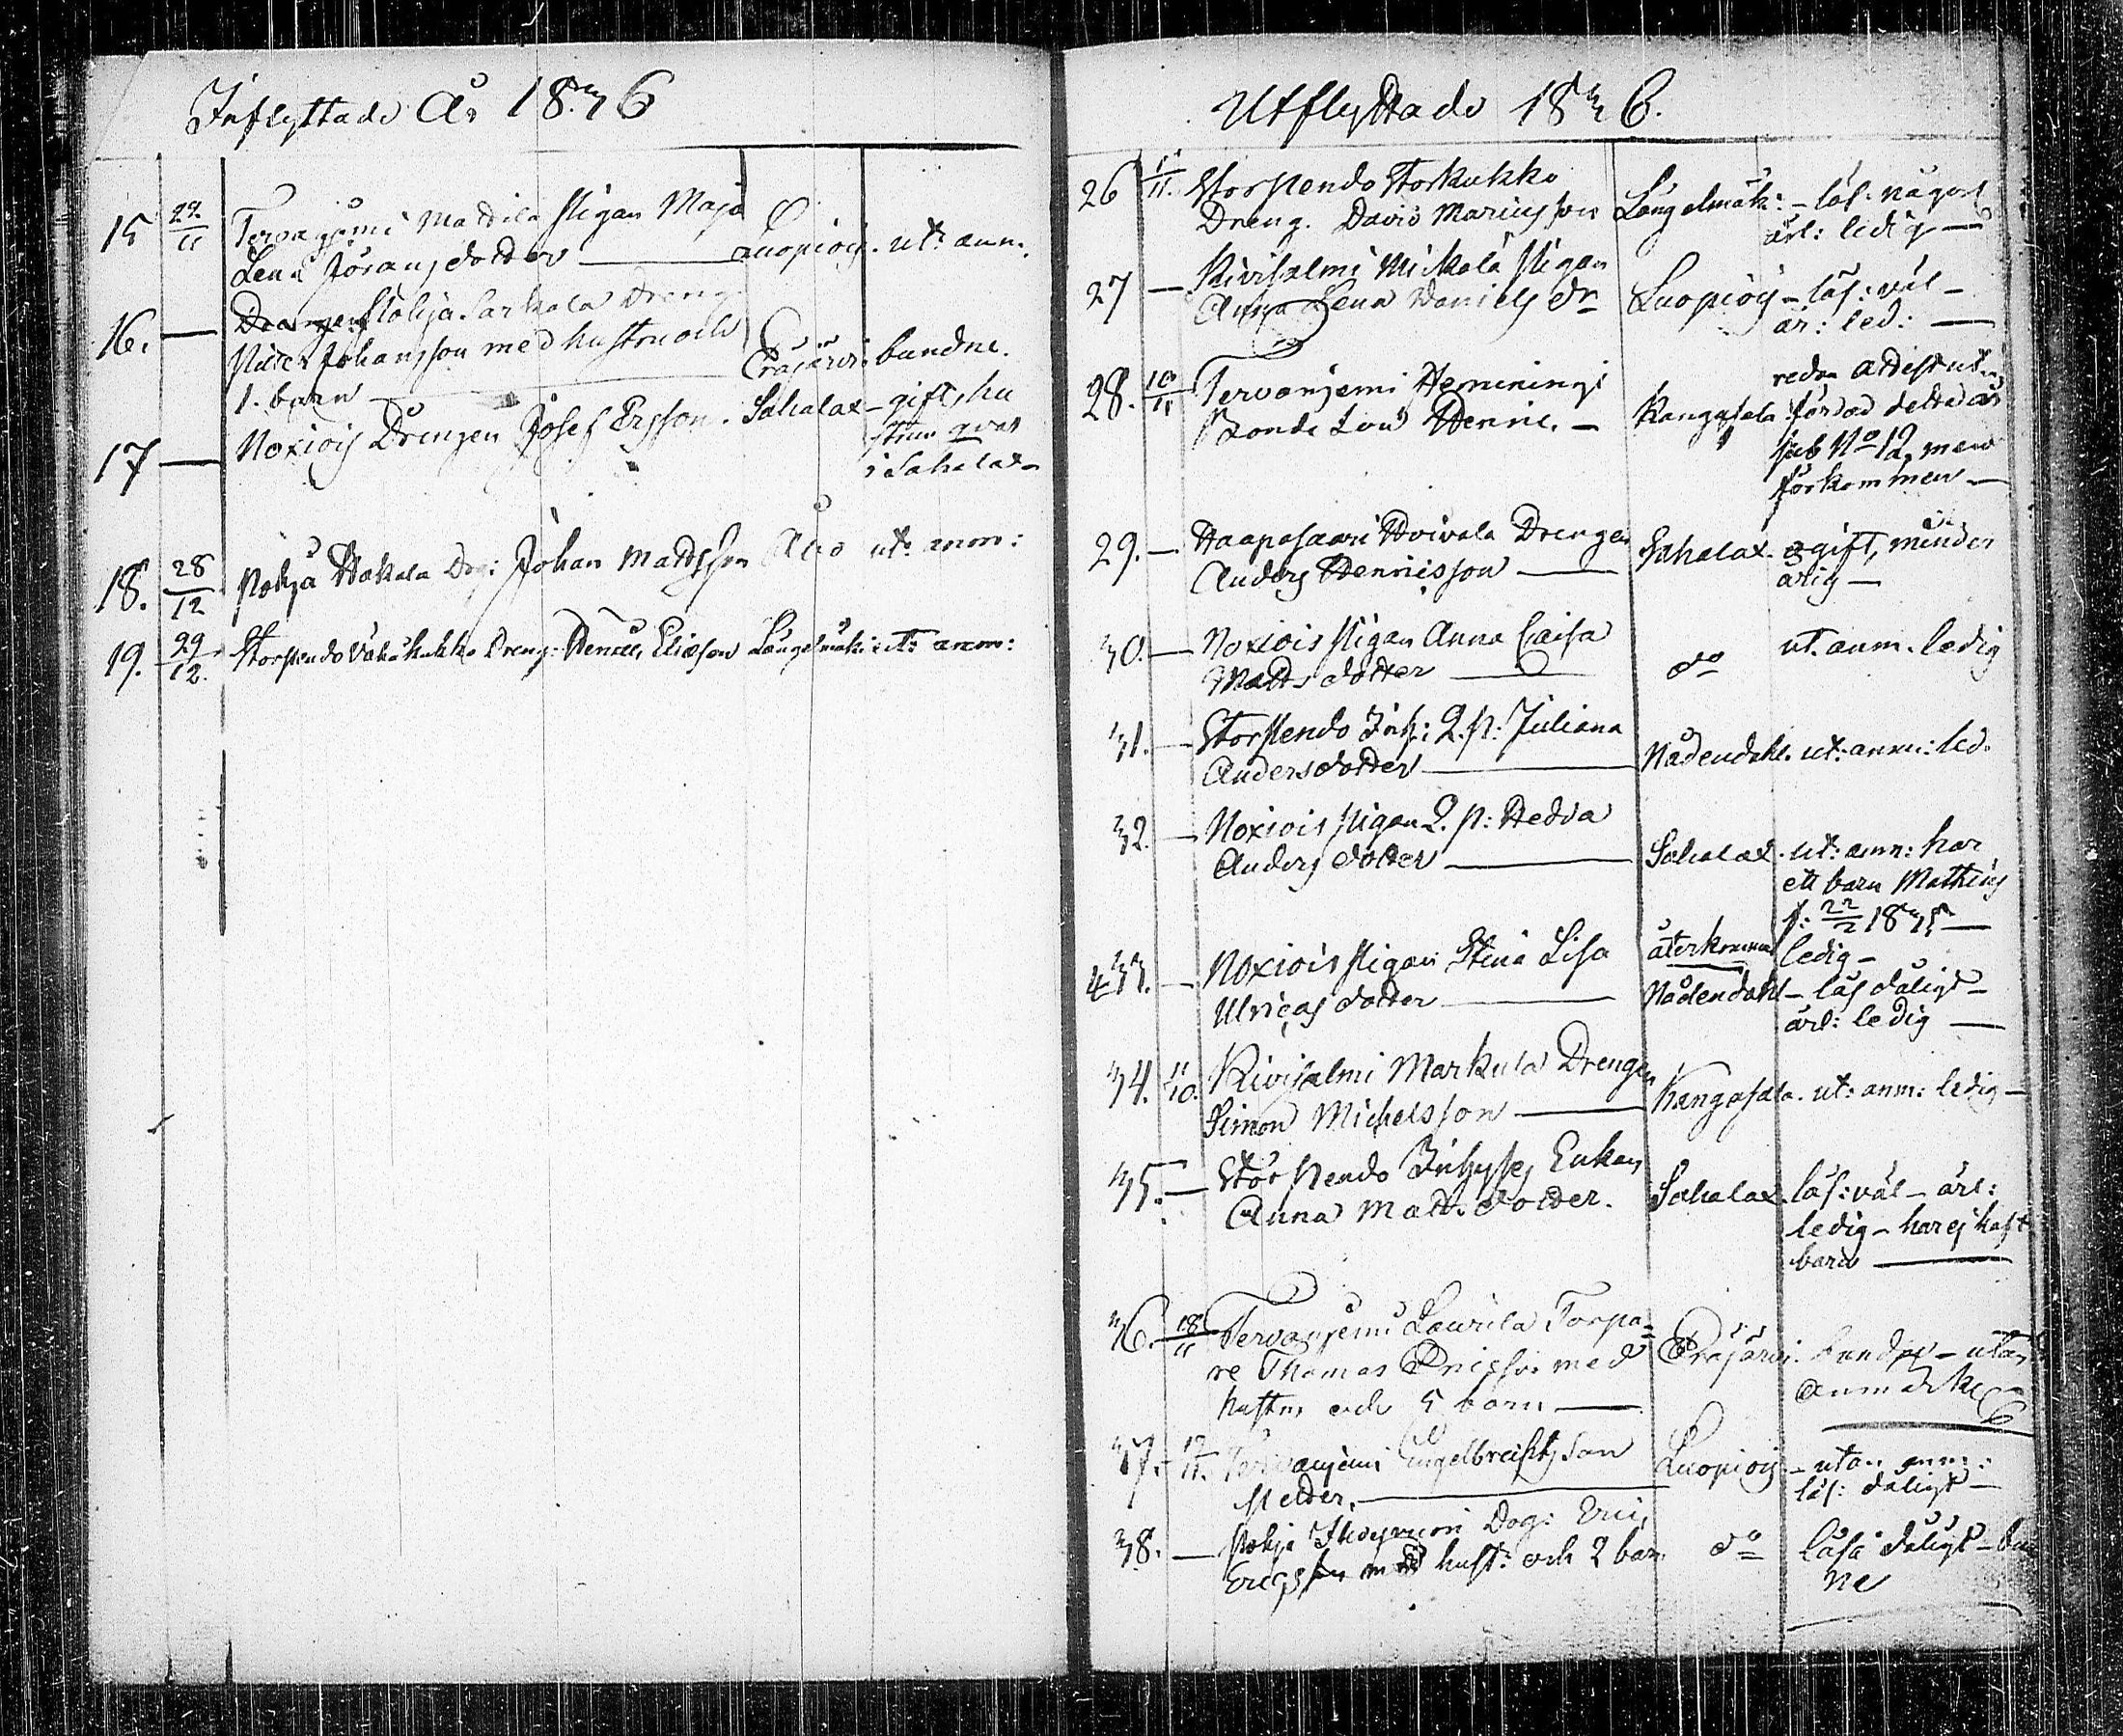 Inflyttade År 1836
15 24/11 Tervanjemi Mattila Pigan Maja
Lena Jöransdotter — Luopiois. ut: anm:
16. — Drengen Pohja Sarkala Dreng
Johansson med hustru och
1. barn — Eräjärvi bundne.
17 — Noxiois Drengen Josef Ersson. Sahalax — gift, hu
strun qvar
i Sahalax —
18. 28/12 Pohja Hakala Dr: Johan Mattsson Åbo ut: anm:
19. 29/12. Storpendo Vähäkukko Dreng: Henric Eliasson Längelmäki ut: anm:
Utflyttade 1836.
26 11/11. Storpendo Storkukko
Dreng. David Mariusson Längelmäki — läs: något
ärl: ledig —
27 — Kivisalmi Mickala Pigan
Anna Lena Daniels dr Luopiois — läs: väl —
är: led: —
28. 10/11 Tervanjemi Hemmingi
Bonde Son Henric. — Kangasala redan attest
förvad detta år
sub No 12, men
förkommen —
29. — Haapasaari Hoivala Drengen
Anders Henricsson — Sahalax. ogift, minder
årig —
30. — Noxiois Pigan Anna Caisa
Matts dotter — do ut. anm. ledig
31. — Storpendo Inh: Q. p: Juliana
Andersdotter — Nådendahl. ut: anm: led.
32. — Noxiois Pigan Q. p: Hedda
Anders dotter — Sahalax. ut: anm: har
ett barn Mathias
f: 22/2 1835 —
33. — Noxiois Pigan Stina Lisa återkommen ledig —
Ulricas dotter — Nådendahl — läs dåligt —
ärl: ledig —
34. 11/10. Kivisalmi Markula Drengen
Simon Michelsson — Kangasala. ut: anm: ledig —
35. — Storpendo Inhyses Enkan
Anna Matts dotter. Sahalax. läs: väl — ärl:
ledig — har ej haft
barn —
36. 18/11 Tervanjemi Laurila Torpa=
re Thomas Ericsson med
hustru och 5 barn — Eräjärvi. bundne — utan
anmärk
37. 19/11. Tervanjemi Engelbrechts Son
Petter. — Luopiois — utan anm:
läs: dåligt —
38. — Pohja Dog: Eric
Ericsson med hust: och 2 barn do läsa dåligt — bun
ne